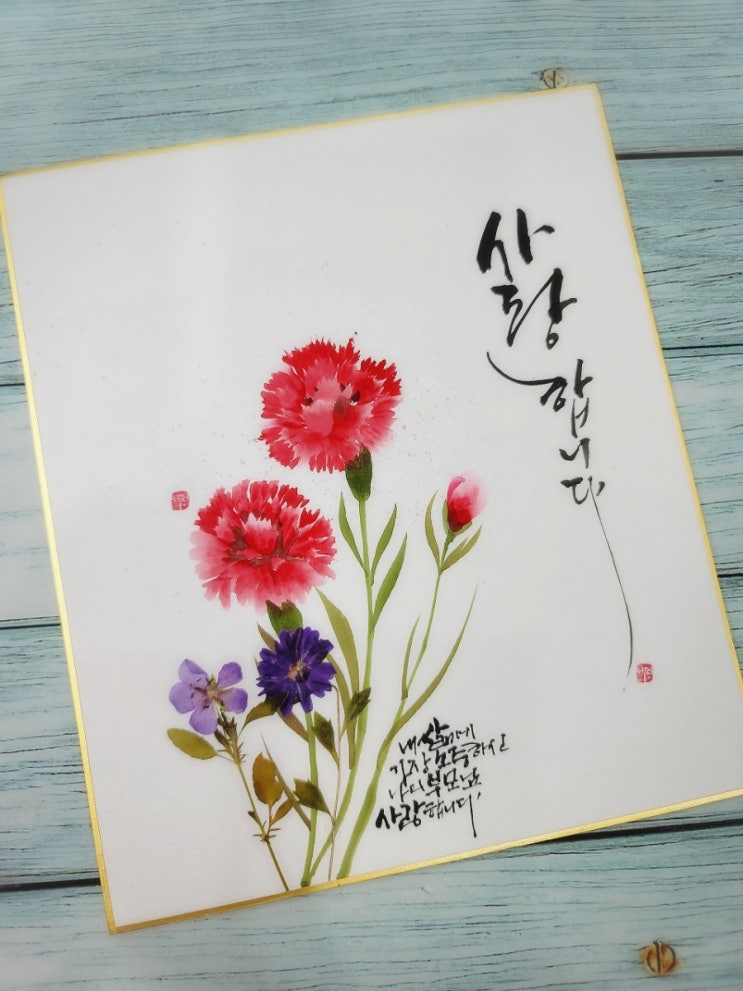 사랑합니다
내 삶에게
가장 소중하신
나의 부모님
사랑합니다